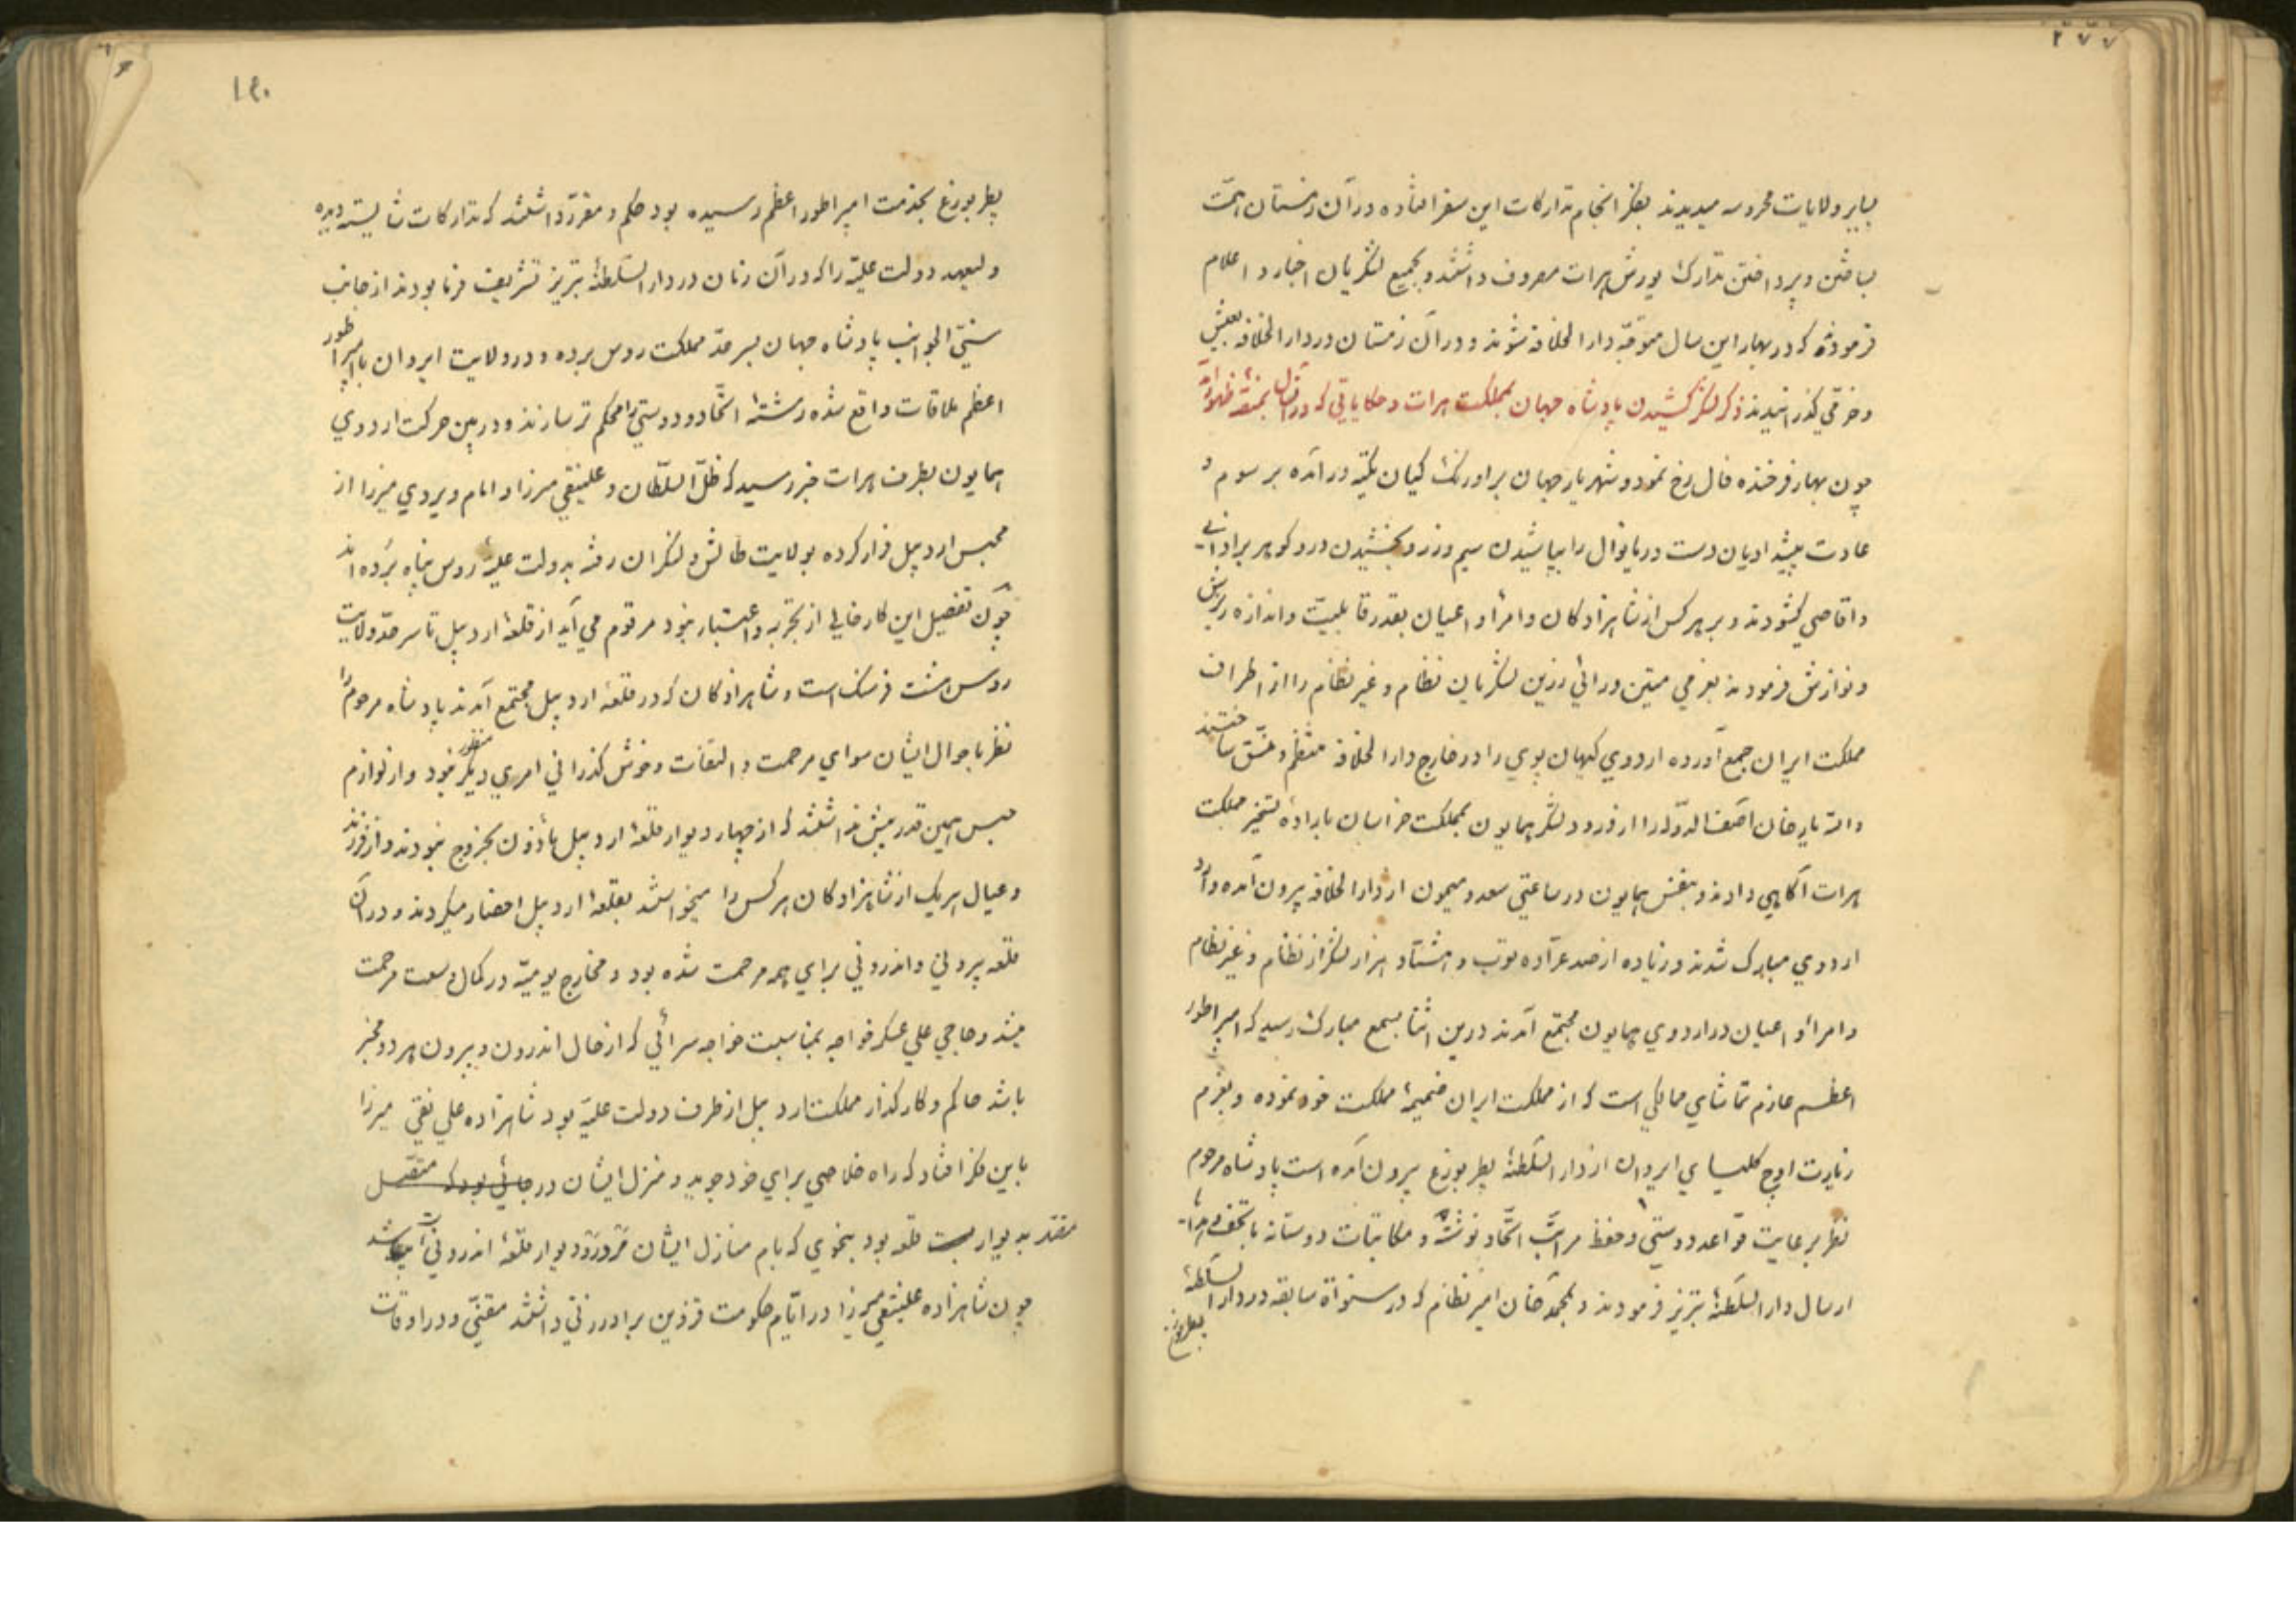 ۲۷۷
بسایر ولایات محروسه میدیدند بفکر انجام تدارکات این سفر افتاده در آن زمستان همّت
بساختن و پرداختن تدارک یورش هرات مصروف داشتند و بجمیع لشکریان اخبار و اعلام
فرمودند که در بهار این سال متوجّه دارالخلافه شوند و در آن زمستان در دارالخلافه بعیش
و خرّمی گذرانیدند ذکر لشکر کشیدن پادشاه جهان بمملکت هرات و حکایاتی که در آن سال بمنصّه ظهور آمد
چون بهار فرخنده فال رخ نمود و شهریار جهان بر اورنگ کیان تکیه در آمده برسوم و
عادت پیشدادیان دست دریا نوال را بپاشیدن سیم و زر و بخشیدن در و گوهر بر ادانی
و اقاصی گشودند و بر هر کس از شاهزادگان و امرا و اعیان بقدر قابلیّت و اندازه بخشش
و نوازش فرمودند بعزمی متین و رائی رزین لشکریان نظام و غیر نظام را از اطراف
مملکت ایران جمع آورده اردوی کیهان پوی را در خارج دارالخلافه منتظم و متّسق ساختند
و الله یار خان آصف الدّوله را از ورود لشکر همایون بمملکت خراسان باراده تسخیر مملکت
هرات آگاهی دادند و بنفس همایون در ساعتی سعد و میمون از دارالخلافه بیرون آمده وارد
اردوی مبارک شدند و زیاده از صد عرّاده توپ و هشتاد هزار لشکر از نظام و غیر نظام
و امرا و اعیان در اردوی همایون مجتمع آمدند درین اثنا بسمع مبارک رسید که امپراطور
اعظم عازم تماشای ممالکی است که از مملکت ایران ضمیمهٔ مملکت خود نموده و بعزم
زیارت اوچ کلیسای ایروان از دارالسّلطنهٔ پطربورغ بیرون آمده است پادشاه مرحوم
نظر برعایت قواعد دوستی و حفظ مراتب اتّحاد نوشته و مکاتبات دوستانه با تحف و هدایا
ارسال دارالسّلطنهٔ تبریز فرمودند و بمحمّد خان امیر نظام که در سنواة سابقه در دارالسّلطنهٔ
پطربورغ
۱۴۰
پطربورغ بخدمت امپراطور اعظم رسیده بود حکم و مقرّر داشتند که تدارکات شایسته دیده
ولیعهد دولت علیّه را که در آن زمان در دارالسّلطنهٔ تبریز تشریف فرما بودند از جانب
سنیّ الجوانب پادشاه جهان بسر حدّ مملکت روس برده و در ولایت ایروان با امپراطور
اعظم ملاقات واقع شده رشتهٔ اتّحاد و دوستی را محکم تر سازند و در حین حرکت اردوی
همایون بطرف هرات خبر رسید که ظلّ السّلطان و علینقی میرزا و امام ویردی میرزا از
محبس اردبیل فرار کرده بولایت طالش و لنکران رفته بدولت علیّهٔ روس پناه برده اند
چون تفصیل این کار خالی از تجربه و اعتبار نبود مرقوم می آید از قلعهٔ اردبیل تا سرحدّ ولایت
روس هشت فرسنگ است و شاهزادگان که در قلعهٔ اردبیل مجتمع آمدند پادشاه مرحوم را
نظر باحوال ایشان سوای مرحمت و التفات و خوش گذرانی امری دیگر منظور نبود و از لوازم
حبس همین قدر بیش نداشتند که از چهار دیوار قلعهٔ اردبیل مأذون بخروج نبودند و از فرزند
و عیال هریک از شاهزادگان هر کس را میخواستند بقلعهٔ اردبیل احضار میکردند و در آن
قلعه بیرونی و اندرونی برای همه مرحمت شده بود و مخارج یومیّه در کمال وسعت مرحمت
میشد و حاجی علی عسکر خواجه بمناسبت خواجه سرائی که از حال اندرون و بیرون هر دو مخبر
باشد حاکم و کارگذار مملکت اردبیل از طرف دولت علیّه بود شاهزاده علی نقی میرزا
باین فکر افتاد که راه خلاصی برای خود جوید و منزل ایشان در جائی بود که متّصل
بدیوار قلعه بود بنحوی که بام منازل ایشان دیوار قلعهٔ اندرونی
چون شاهزاده علینقی میرزا در ایّام حکومت قزوین برادر زنی داشتند مقنّی و در اوقات